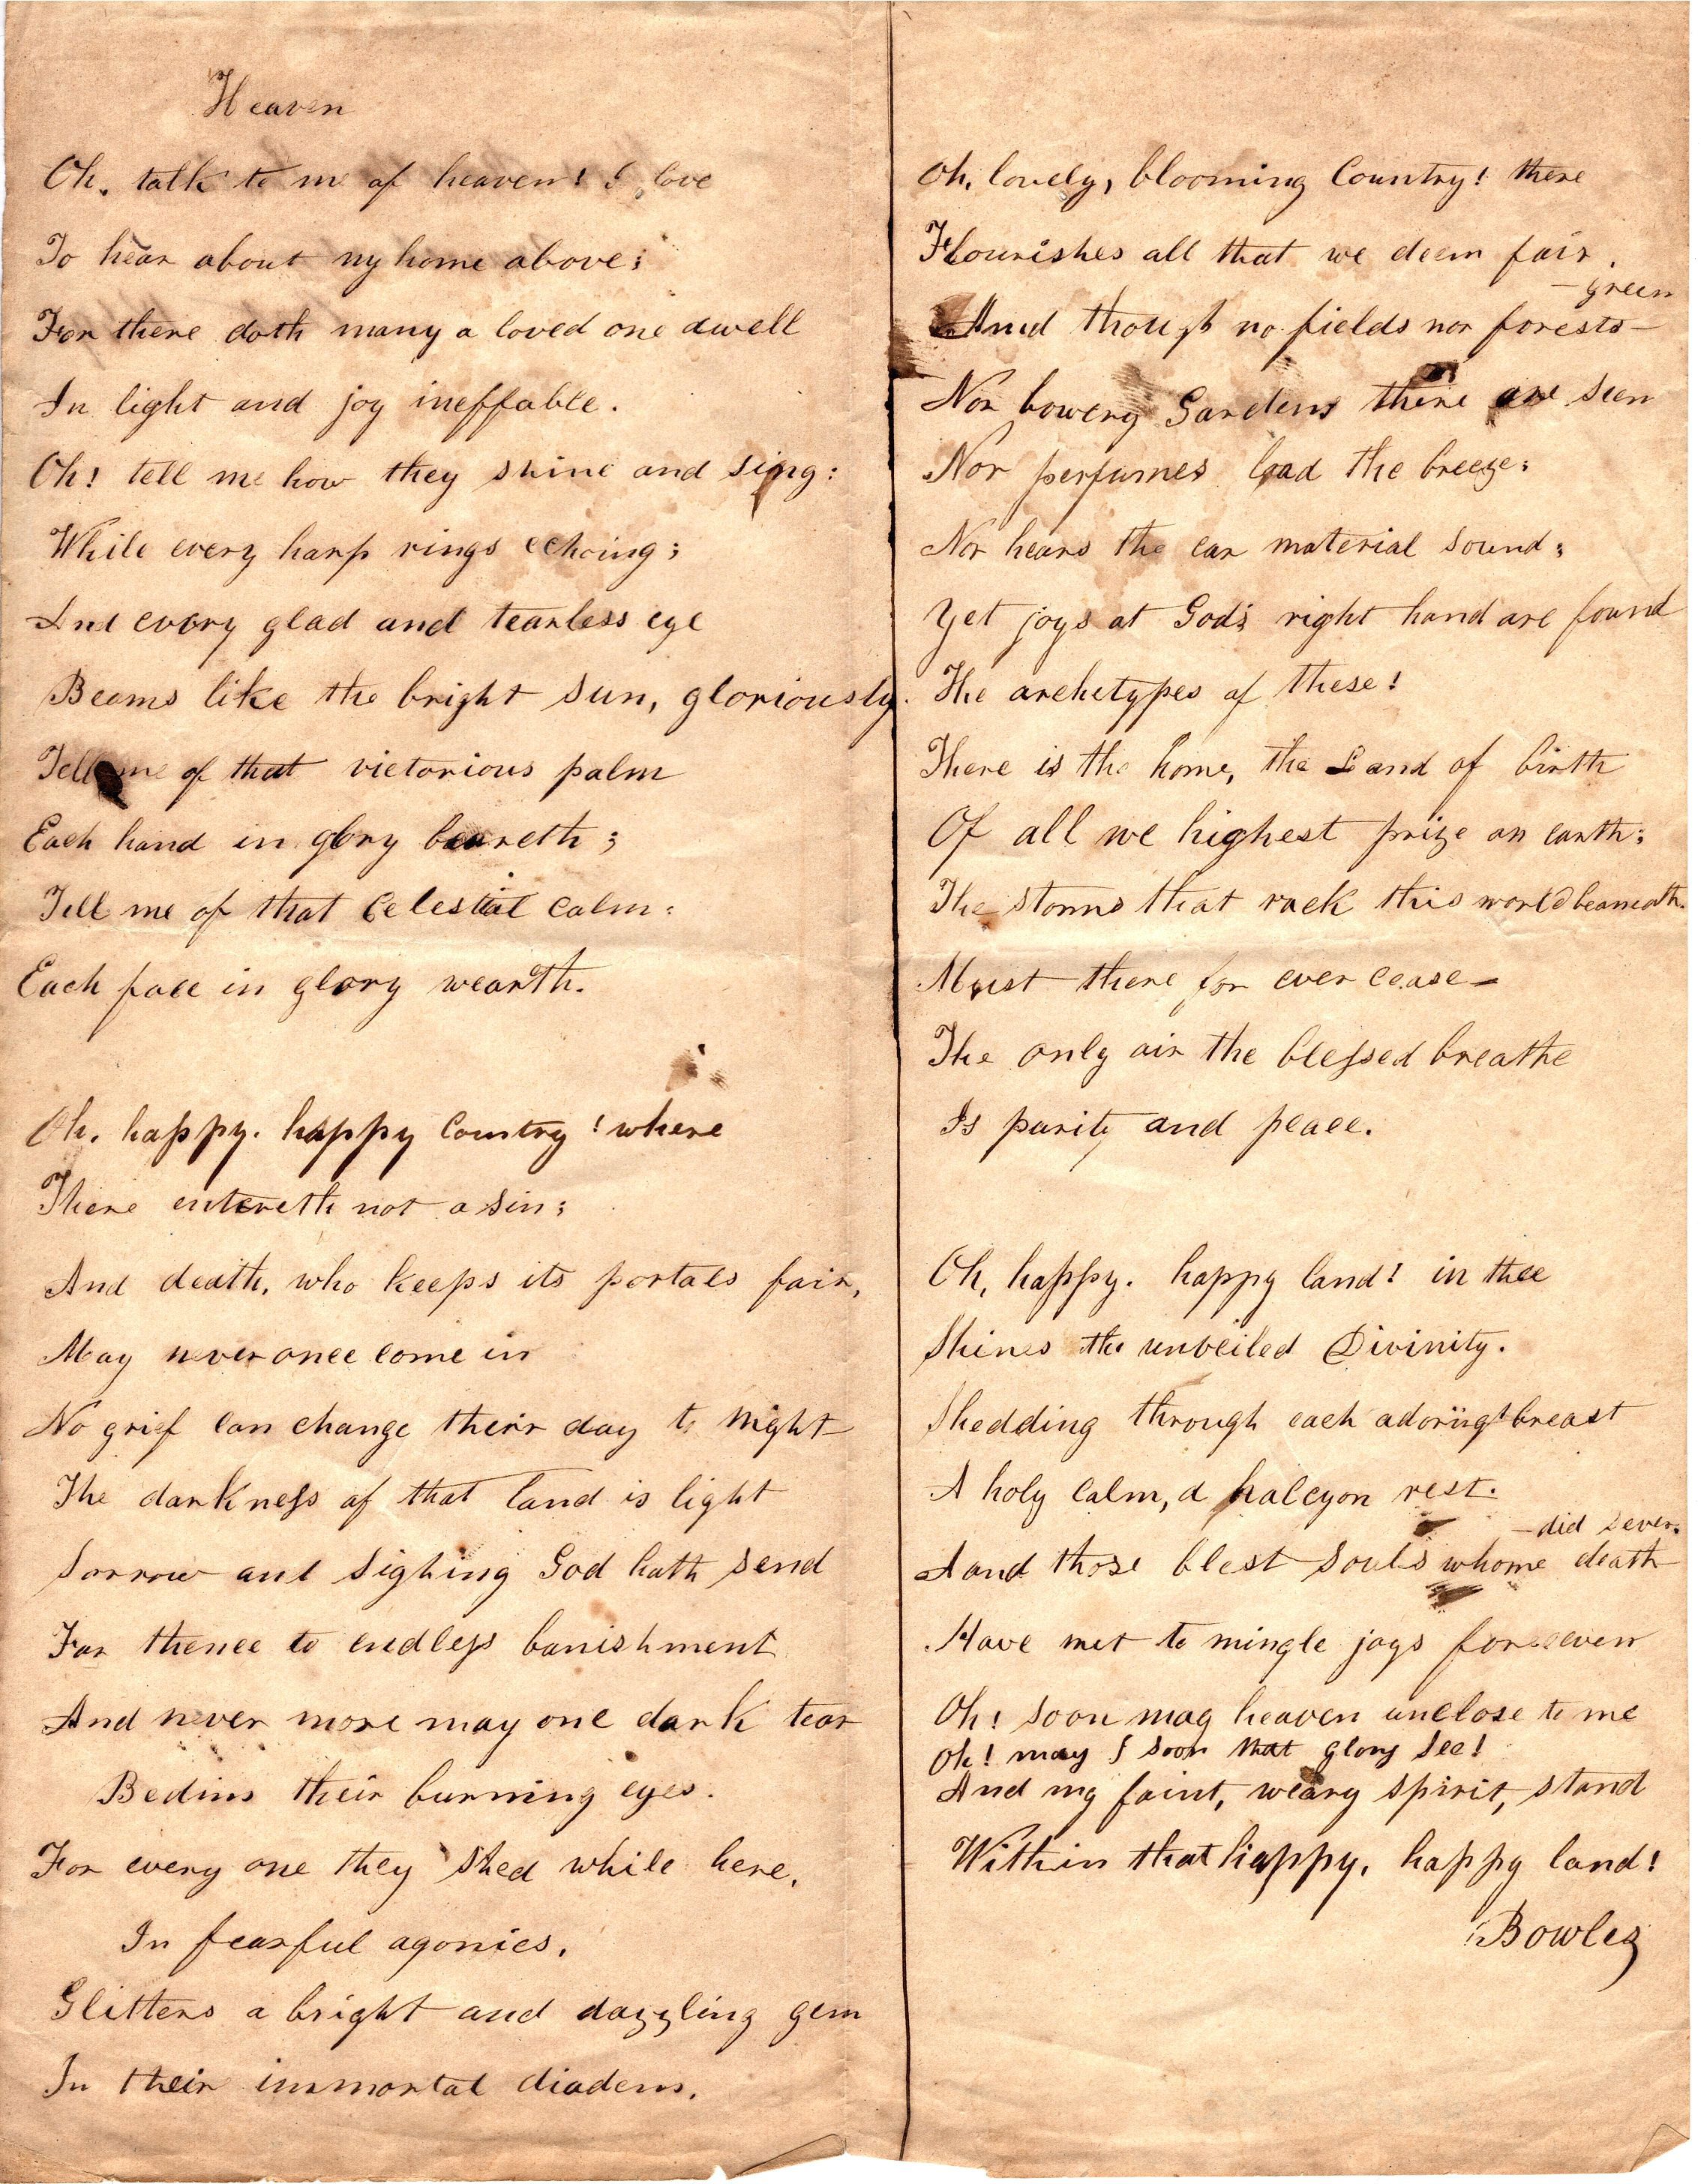 Heaven
Oh, talk to me of heaven! I love
To hear about my home above;
For there doth many a loved one dwell
In light and joy ineffable.
Oh! tell me how they shine and sing:
While every harp rings echoing;
And every glad and tearless eye
Beams like the bright sun, gloriously.
Tell me of that victorious palm
Each hand in glory beareth;
Tell me of that Celestial Calm:
Each face in glory wearth.
Oh, happy. happy Country! where
There entereth not a sin;
And death, who keeps its portals fair,
May never once come in
No grief can change their day to night
The darkness of that land is light
Sorrow and Sighing God hath send
Far thence to endless banishment
And never more may one dark tear
Bedim their burning eyes.
For every one they shed while here,
In fearful agonies,
Glitters a bright and dazzling gem
In their immortal diadem.
Oh, lovely, blooming Country! there
Flourishes all that we deem fair.
And though no fields nor forests - green
Nor bowery Gardens there are seen
Nor perfumes load the breeze;
Nor hears the ear material sound;
Yet joys at God's right hand are found
The archetypes of these!
There is the home, the Land of birth
Of all we highest prize on earth;
The storms that rack this world beaneath.
Must there for ever cease -
The only air the blessed breathe
Is purity and peace.
Oh, happy. happy land! in thee
Shines the unveiled Divinity.
Shedding through each adoring breast
A holy Calm, a halcyon rest.
Aand those blest Souls whome death - did sever.
Have met to mingle joys foreever
Oh! soon may heaven unclose to me
Oh! may I soon that glory see!
And my faint, weary spirit, stand
Within that happy, happy land!
Bowles